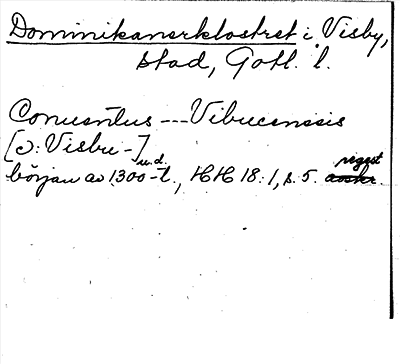 Dominikanerklostret i Visby,
stad, Gotl. l.
Conuentus --- Vibucensis
[ɔ: Visbu-]
början av 1300-t. u.d., HH 18:1, s. 5. regest